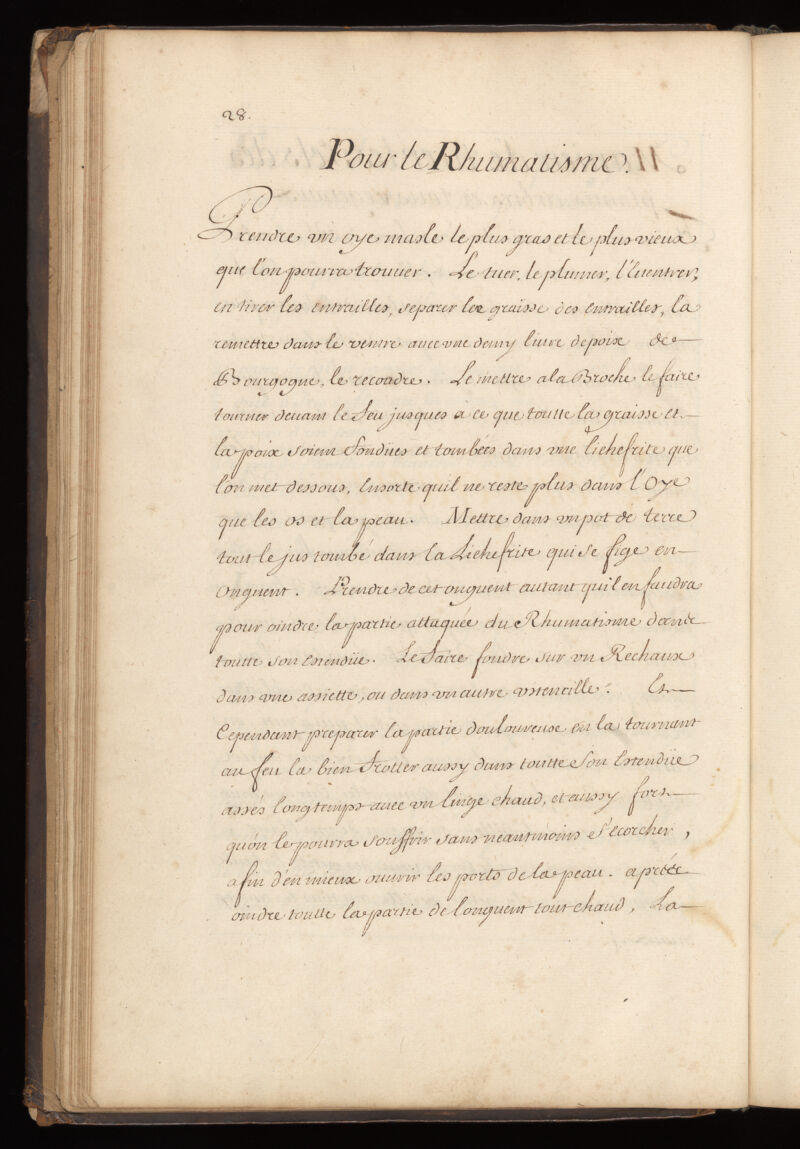 28.
Pour le Rhumatisme.
Prendre vn oye masle le plus gras et le plus vieux
que l'on pourra trouuer. Le tuer, le plumer, l'Euentrer,
en tirer les entrailles, separer la graisse des entrailles, la
remettre dans le ventre auec vne demy liure de poix de
Bourgogne, le recoudre. Le mettre a la Broche le faire
tourner deuant le feu jusques a ce que toutte la graisse et
la poix soient fondües et tombées dans vne lichefrite que
l'on met dessous, Ensorte quil ne reste plus dans l'Oye
que les os et la peau. Mettre dans vn pot de terre
tout le jus tombé dans la Lichefrite qui se fige en
Onguent. Prendre de cet onguent autant quil en faudra
pour oindre la partie attaquée du Rhumatisme dans
toutte son Estendüe. Le faire fondre sur vn Rechaux
dans vne assiette, ou dans vn autre vstencille. Et
Cependant preparer la partie douloureuse en la tournant
au feu la bien frotter aussy dans toutte son Estendüe
assés longtemps auec vn linge chaud, et aussy fort
qu'on le pourra souffrir sans neantmoins s'écorcher,
afin d'en mieux ouurir les ports de la peau. aprés
oindre toutte la partie de l'onguent tout chaud, La